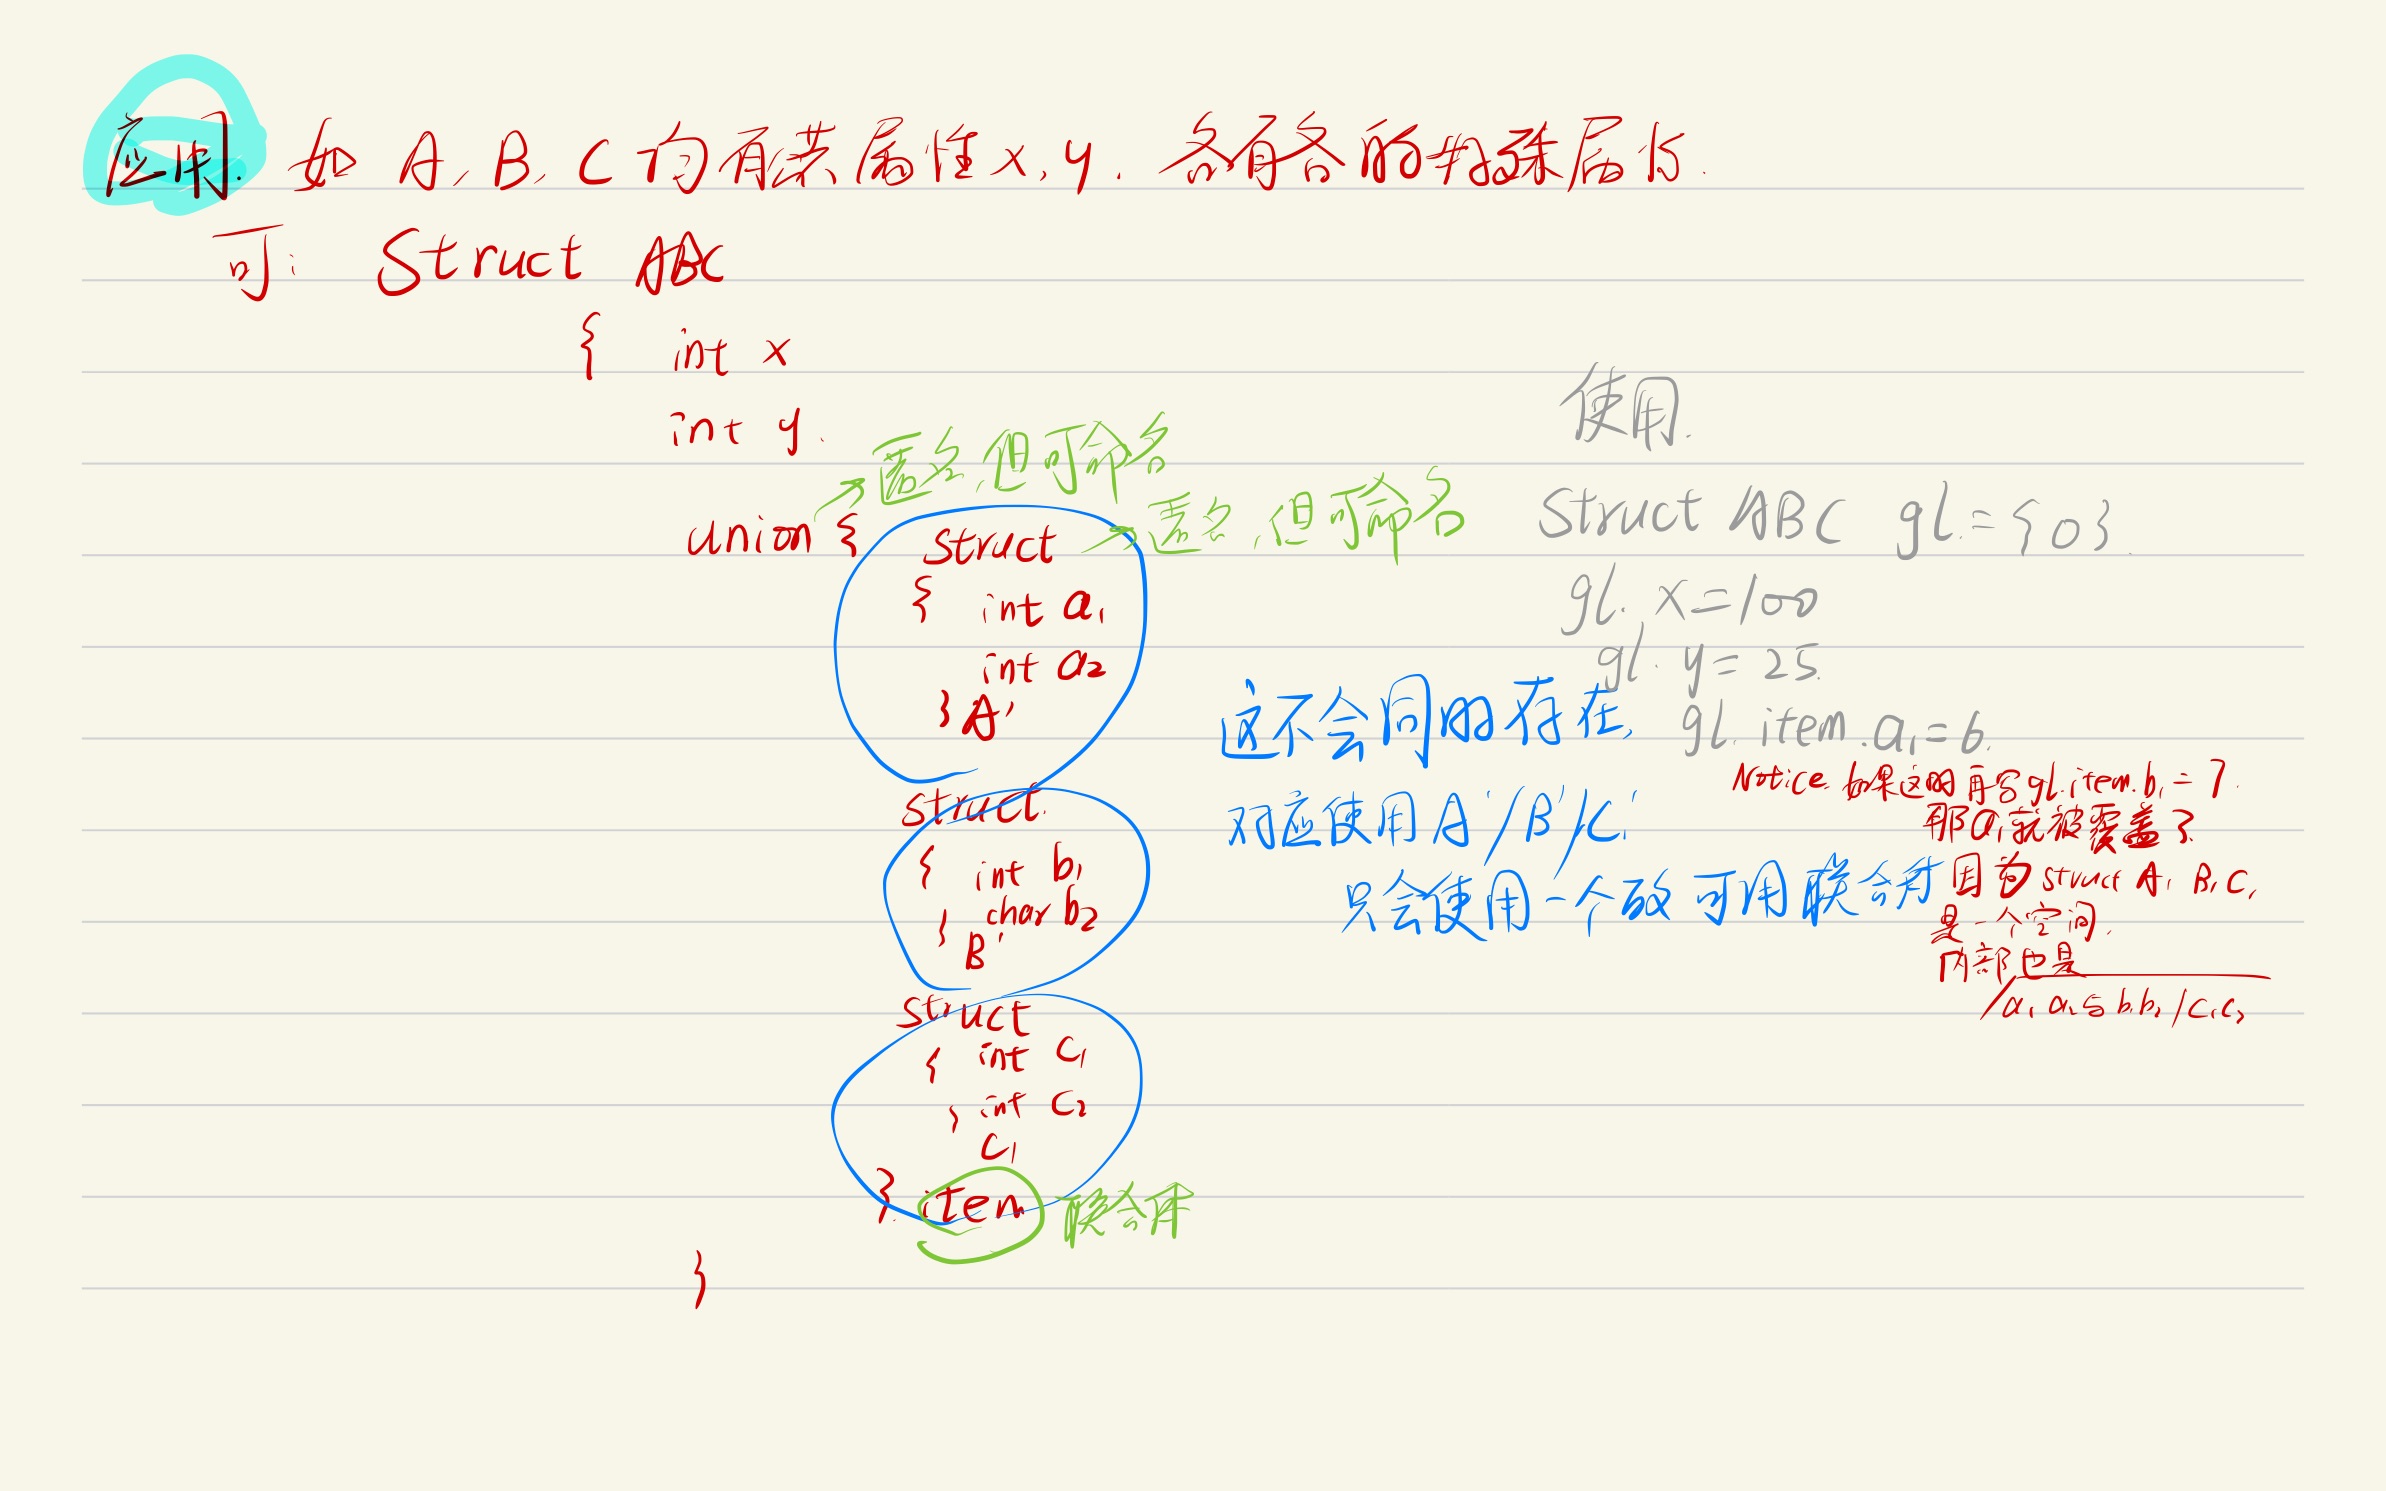 应用. 如 A, B, C 均有共属性 x, y. 各有各的特殊属性.
可: Struct ABC
{ int x
int y.
→匿名,但可命名
union { struct →匿名,但可命名
{ int a₁
int a₂
} A'
struct
{ int b₁
char b₂
} B'
struct
{ int c₁
int c₂
} C₁
} item 联合体
}
这不会同时存在,
对应使用 A'/B'/C'
只会使用一个故可用联合体
使用.
Struct ABC gl = {0}.
gl. x=100
gl. y=25.
gl. item. a₁=6.
Notice. 如果这时再写 gl. item. b₁ = 7.
那a₁就被覆盖了
因为 struct A, B, C,
是一个空间.
内部也是
a₁ a₂ 与 b₁ b₂ / c₁ c₂